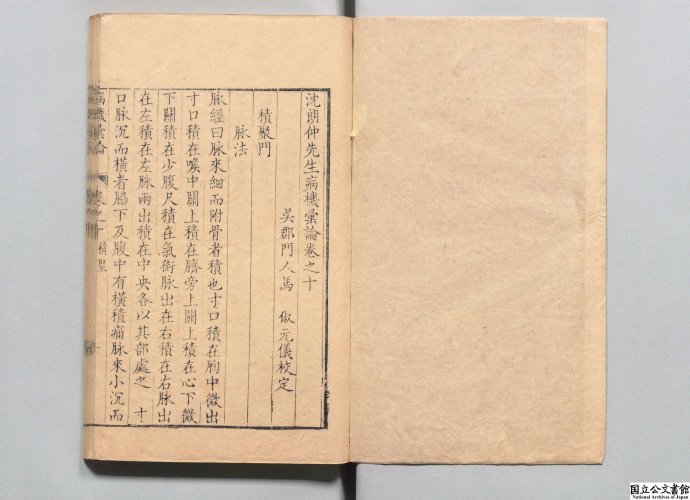 沈朗仲先生病機彙論卷之十
吳郡門人馬 俶元儀校定
積聚門
脉法
脉經曰脉來細而附骨者積也寸口積在胸中微出
寸口積在喉中關上積在臍旁上關上積在心下微
下關積在少腹尺積在氣街脉出在右積在右脉出
在左積在左脉兩出積在中央各以其部處之 寸
口脉沉而橫者脇下及腹中有橫積痛脉來小沉而
病機彙論 卷之十 積聚 一
国立公文書館
National Archives of Japan